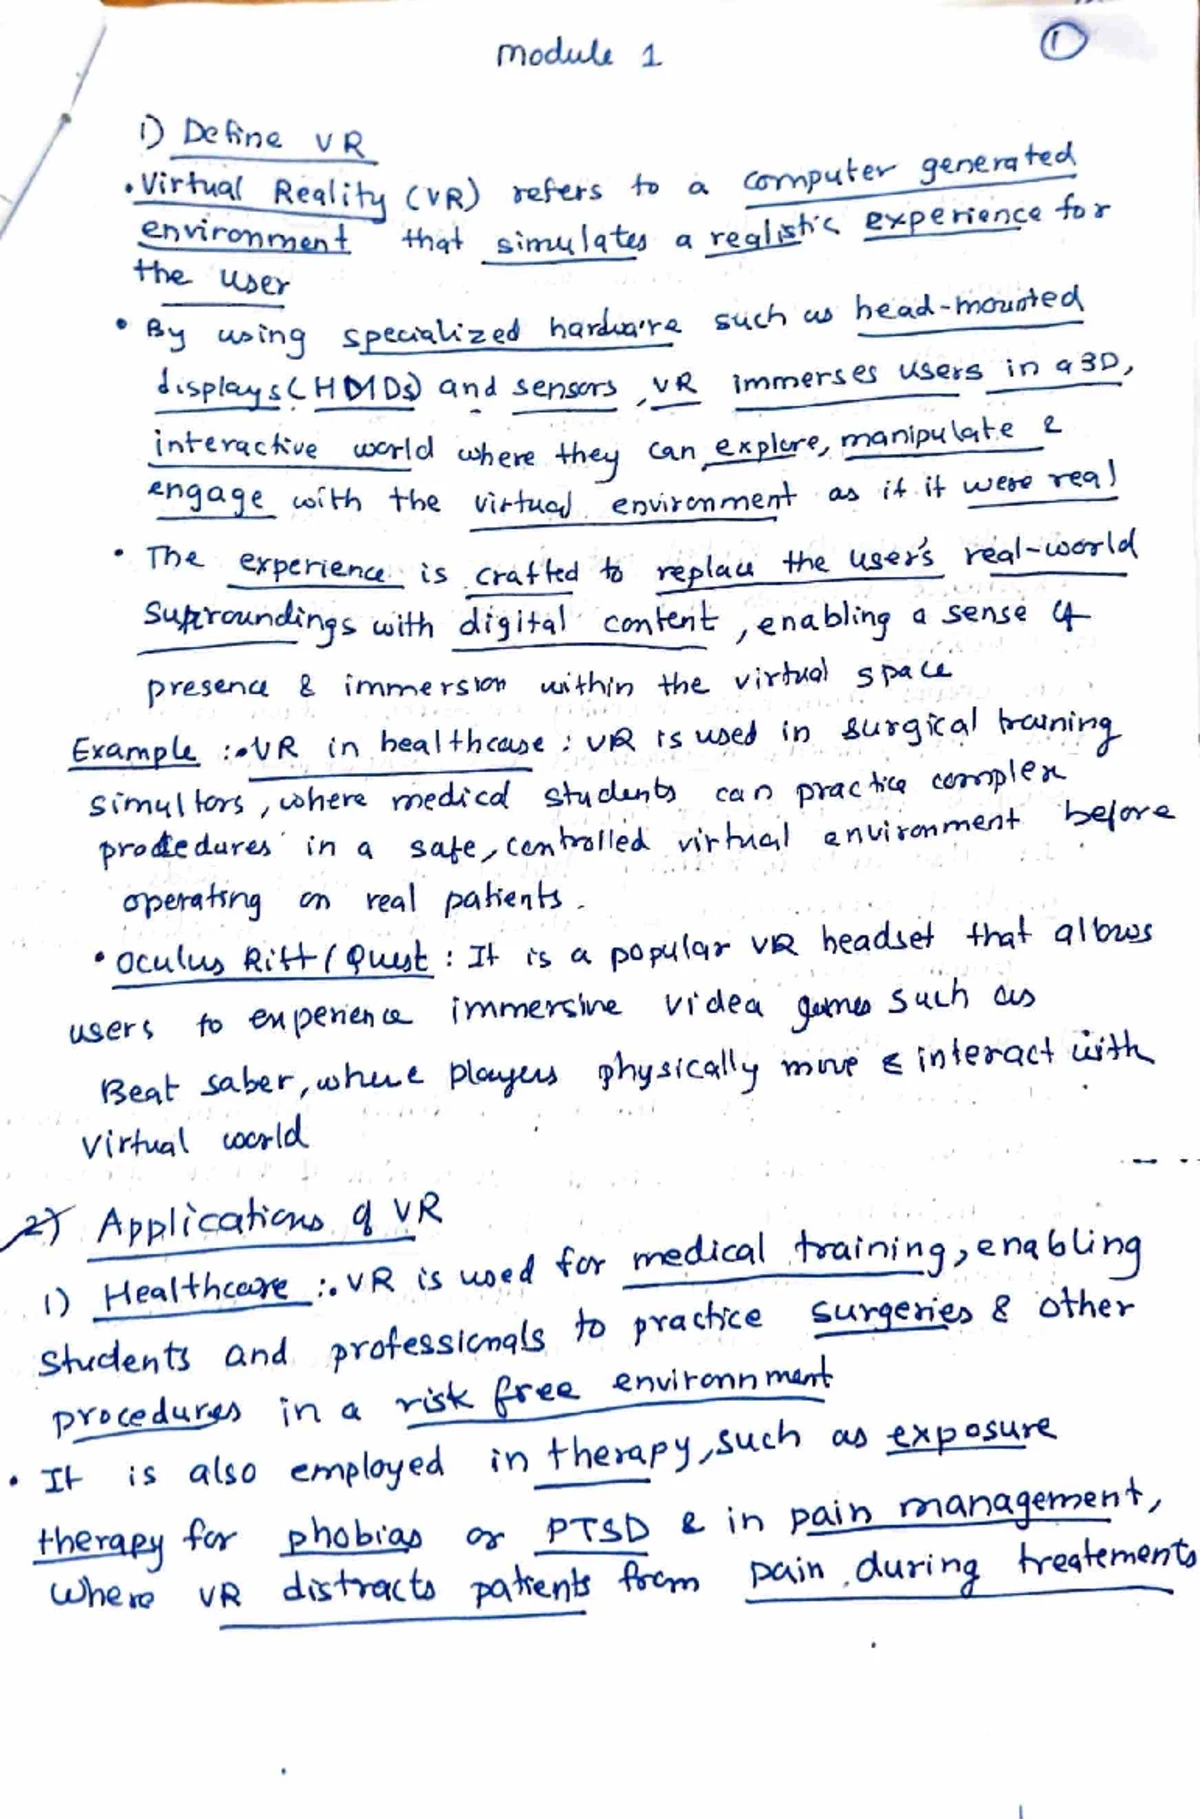 Module 1
1
1) Define VR
• Virtual Reality (VR) refers to a computer generated
environment that simulates a realistic experience for
the user
• By using specialized hardware such as head-mounted
displays (HMDs) and sensors, VR immerses users in a 3D,
interactive world where they can explore, manipulate &
engage with the virtual environment as if it were real
• The experience is crafted to replace the user's real-world
Surroundings with digital content, enabling a sense of
presence & immersion within the virtual space
Example :• VR in healthcare : VR is used in surgical training
simultors, where medical students can practice complex
procedures in a safe, controlled virtual environment before
operating on real patients.
• Oculus Rift / Quest : It is a popular VR headset that allows
users to experience immersive video games such as
Beat saber, where players physically move & interact with
virtual world
2) Applications of VR
1) Healthcare :• VR is used for medical training, enabling
Students and professionals to practice surgeries & other
procedures in a risk free environnment
• It is also employed in therapy, such as exposure
therapy for phobias or PTSD & in pain management,
Where VR distracts patients from pain during treatements